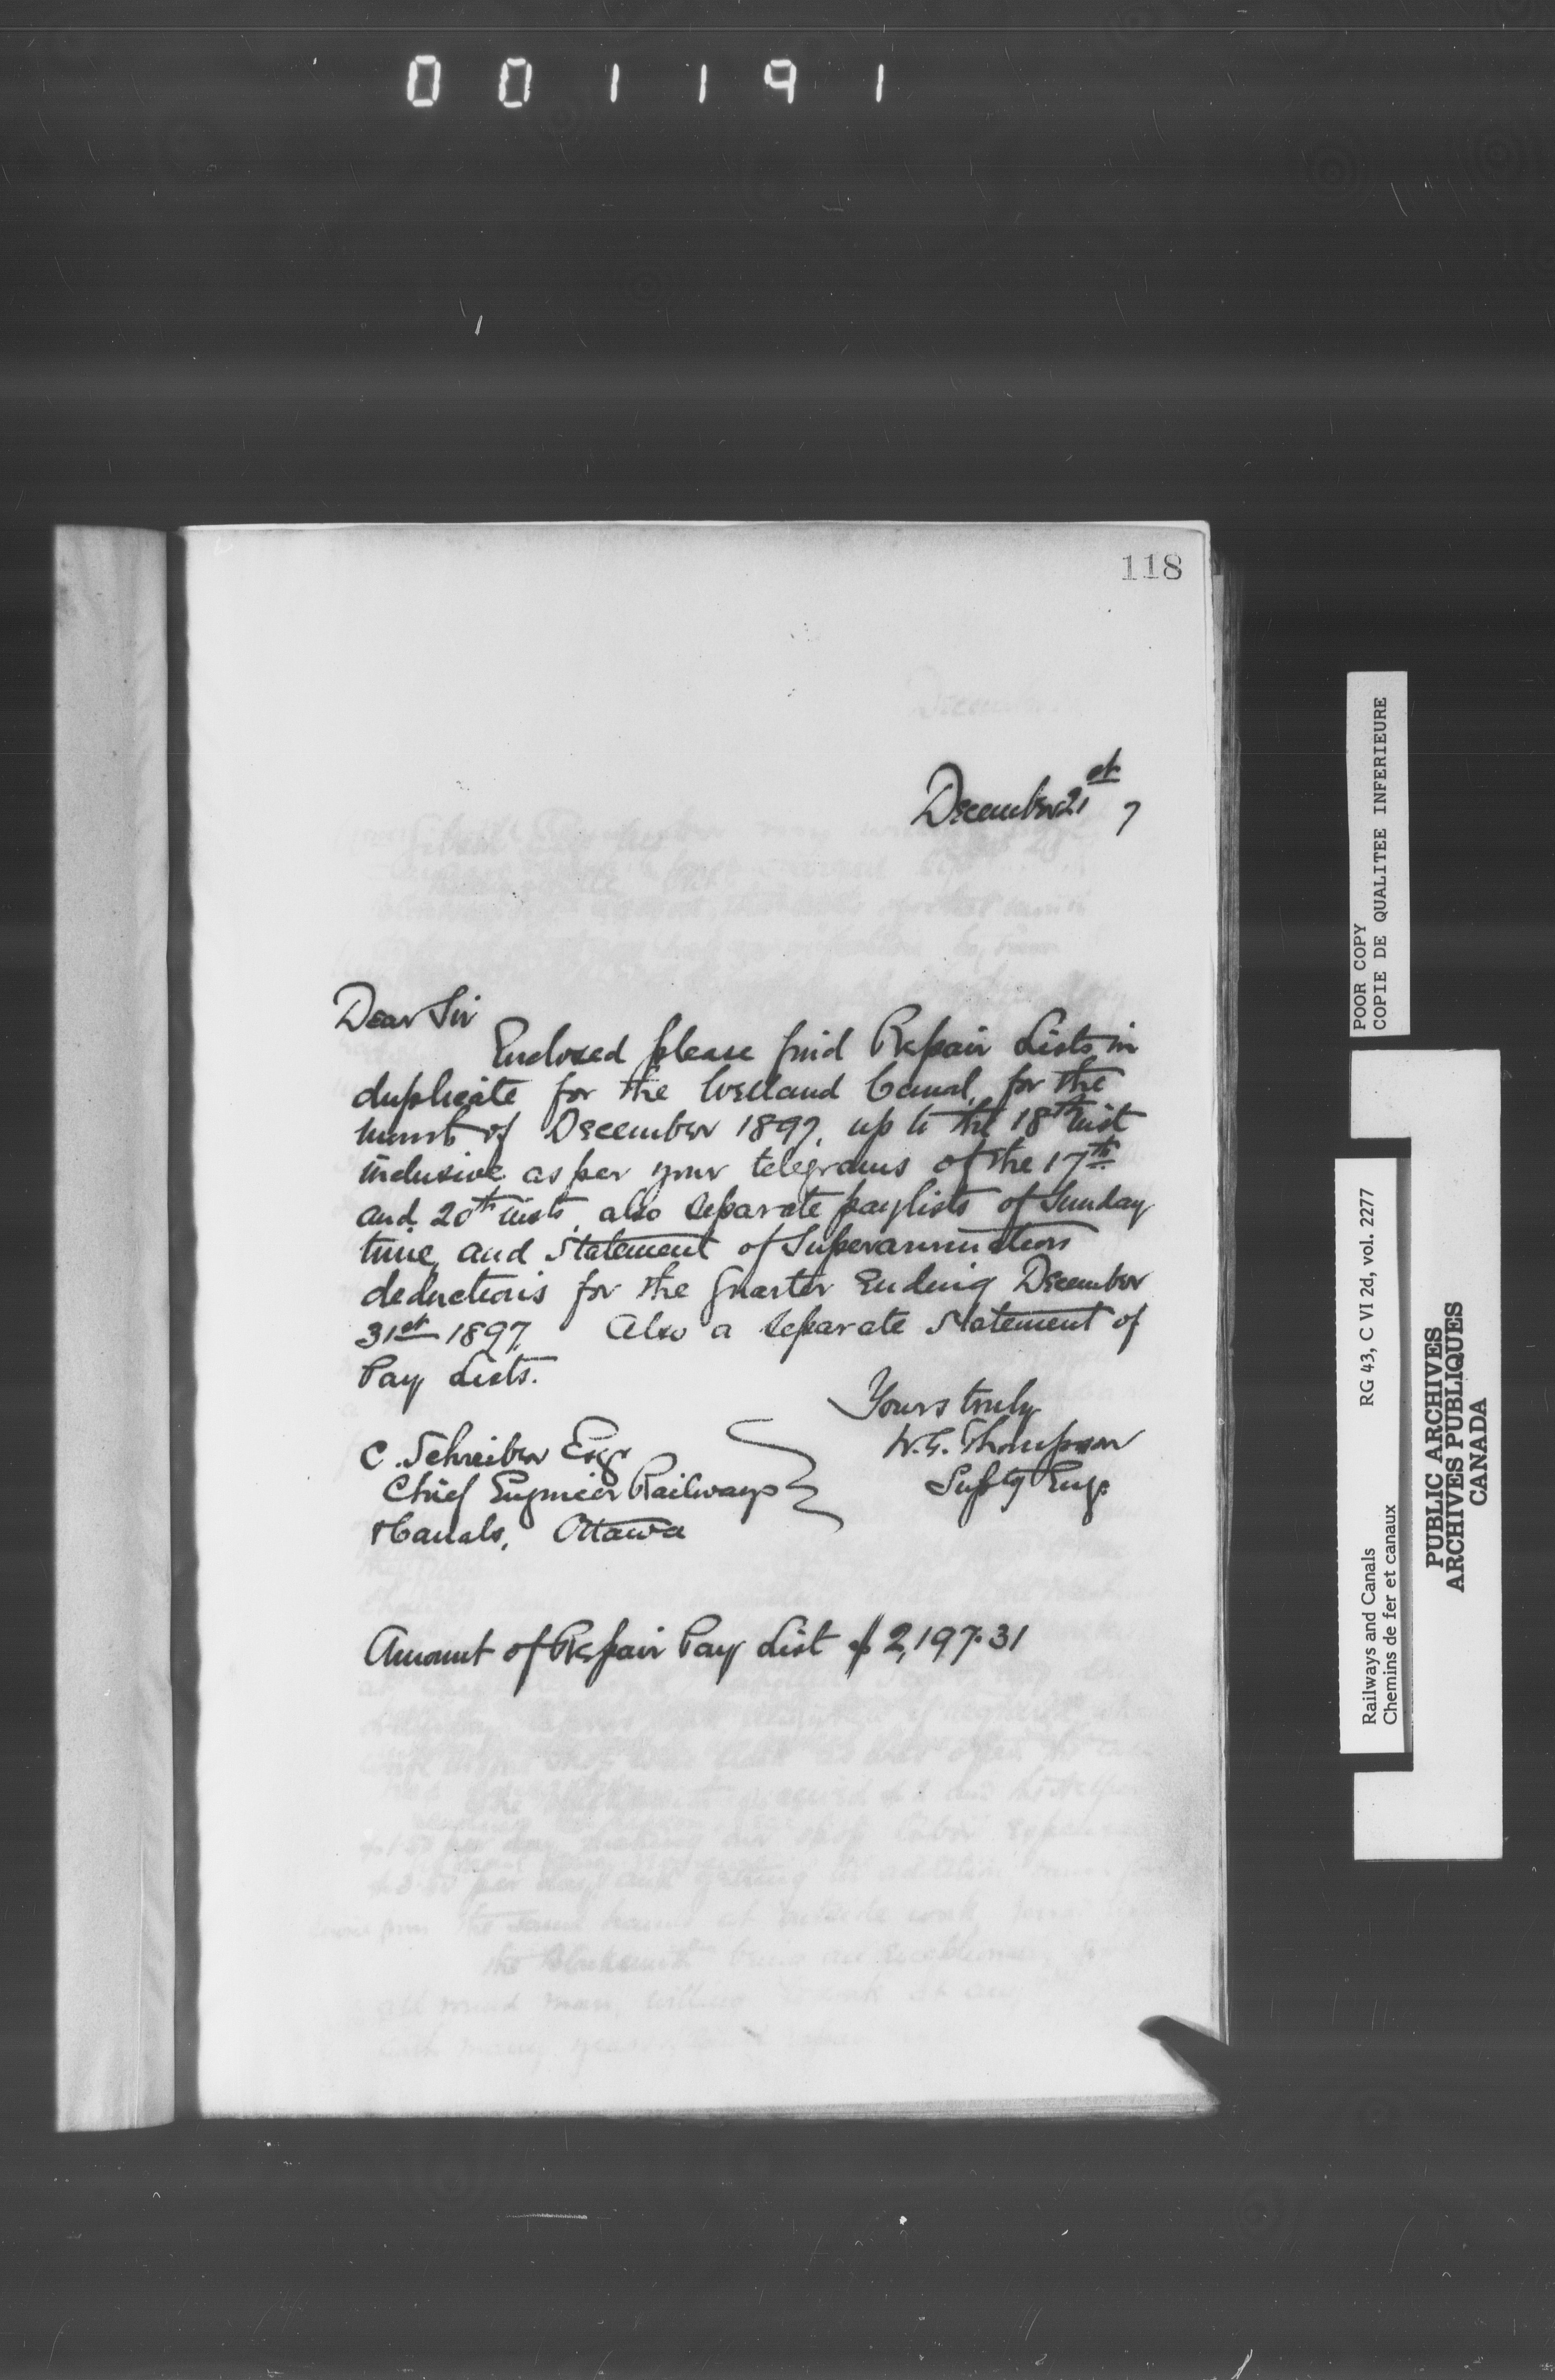 001191
118
December 21st 7
Dear Sir
Enclosed please find Repair Lists in
duplicate for the Welland Canal, for the
month of December 1897, up to the 18th inst
inclusive as per your telegrams of the 17th
and 20th insts, also separate paylists of Sunday
time, and Statement of Superannuation
deductions for the Quarter Ending December
31st 1897. Also a separate Statement of
Pay Lists.
Yours truly
W.G. Thompson
Supt'g Eng.
C. Schreiber Esqr
Chief Engineer Railways
& Canals, Ottawa
Amount of Repair Pay List $2,197.31
POOR COPY
COPIE DE QUALITEE INFERIEURE
Railways and Canals RG 43, C VI 2d, vol. 2277
Chemins de fer et canaux
PUBLIC ARCHIVES
ARCHIVES PUBLIQUES
CANADA